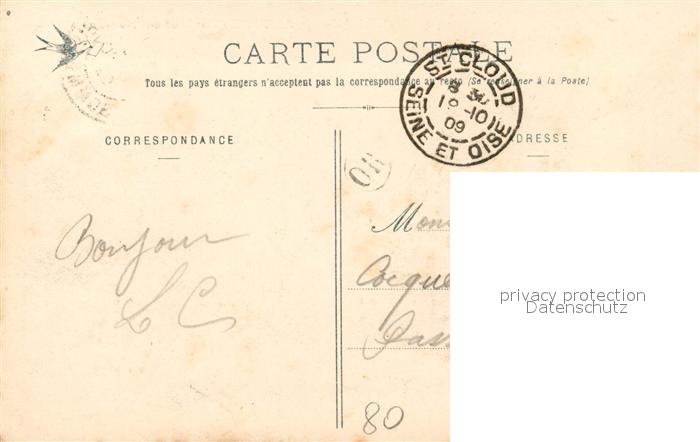 CARTE POSTALE
Tous les pays étrangers n'acceptent pas la correspondance au recto (Se renseigner à la Poste)
ST CLOUD
8 30
18 -10
09
SEINE ET OISE
CORRESPONDANCE
ADRESSE
Bonjour
L C
Mon
Cocque
80
privacy protection
Datenschutz